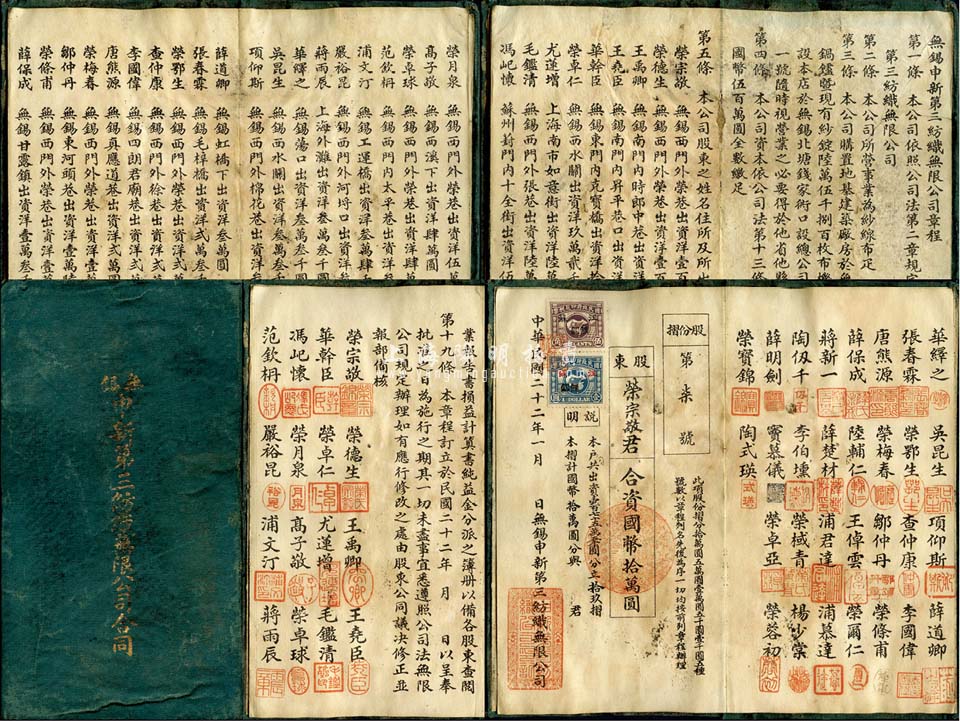 無錫申新第三紡織無限公司章程
第一條 本公司依照公司法第二章規定
第三紡織無限公司
第二條 本公司所營事業為紗線布疋
第三條 本公司購置地基建築廠房於無
鍋爐曁現有紗錠陸萬伍千捌百枚布機
設本店於無錫北塘錢家衖口設總公司
一號隨時視營業之必要得於他省他縣
第四條 本公司資本依公司法第十三條
國幣伍百萬圓全數繳足
第五條 本公司股東之姓名住所及所出
榮宗敬 無錫西門外榮巷出資洋壹百
榮德生 無錫西門外榮巷出資洋壹百
王禹卿 無錫南門內時郎中巷出資洋
王堯臣 無錫南門內昇平巷口出資洋
華幹臣 無錫東門內克寶橋出資洋
榮卓仁 無錫西水關出資洋玖萬貳
尤蓮增 上海南市如意街出資洋陸萬
毛鑑清 無錫西門外張巷出資洋陸萬
馮屺懷 蘇州葑門內十全街出資洋伍
榮月泉 無錫西門外榮巷出資洋伍萬
高子敬 無錫西溪下出資洋肆萬圓
榮卓球 無錫西門外榮巷出資洋肆萬
范欽枬 無錫西門內太平巷出資洋
浦文汀 無錫工運橋出資洋肆萬
嚴裕昆 無錫西門外河埒口出資洋
蔣雨辰 上海外灘出資洋叁萬叁千
華繹之 無錫蕩口出資洋叁萬叁千圓
吳昆生 無錫西水關出資洋叁萬
項仰斯 無錫西門外棉花巷出資洋
薛道卿 無錫虹橋下出資洋弍萬圓
張春霖 無錫毛梓橋出資洋弍萬叁
榮鄂生 無錫西門外榮巷出資洋弍
查仲康 無錫西門外徐巷出資洋弍
李國偉 無錫四朗君廟巷出資洋弍
唐熊源 無錫真應道巷出資洋弍萬圓
榮梅春 無錫西門外榮巷出資洋
鄒仲丹 無錫東河頭巷出資洋壹萬
榮條甫 無錫西門外榮巷出資洋壹
薛保成 無錫甘露鎮出資洋壹萬
無錫申新第三紡織無限公司合同
業報告書損益計算書純益金分派之簿册以備各股東查閱
第十九條 本章程訂立於民國二十二年 月 日以呈奉
批准之日為施行之期其一切未盡事宜悉遵照公司法無限
公司規定辦理如有應行修改之處由股東公同議決修正並
報部備核
榮宗敬 榮德生 王禹卿 王堯臣
華幹臣 榮卓仁 尤蓮增 毛鑑清
馮屺懷 榮月泉 高子敬 榮卓球
范欽枬 嚴裕昆 浦文汀 蔣雨辰
華繹之 吳昆生 項仰斯 薛道卿
張春霖 榮鄂生 查仲康 李國偉
唐熊源 榮梅春 鄒仲丹 榮條甫
薛保成 陸輔仁 王倬雲 榮爾仁
蔣新一 薛楚材 浦君達 浦慕達
陶伋千 李伯堹 榮棫青 楊少棠
薛明劍 竇慕儀 榮卓亞 榮蓉初
榮寶錦 陶式瑛
股份摺
第柒號
此項股份摺分拾萬圓五萬圓壹萬圓五千圓壹千圓五種
號數以章程列名先後為序一切均按前列章程辦理
股東
榮宗敬君
合資國幣拾萬圓
說明
本戶共出資壹百七十五萬零圓分立拾玖摺
本摺計國幣拾萬圓分與 君
中華民國二十二年一月 日無錫申新第三紡織無限公司